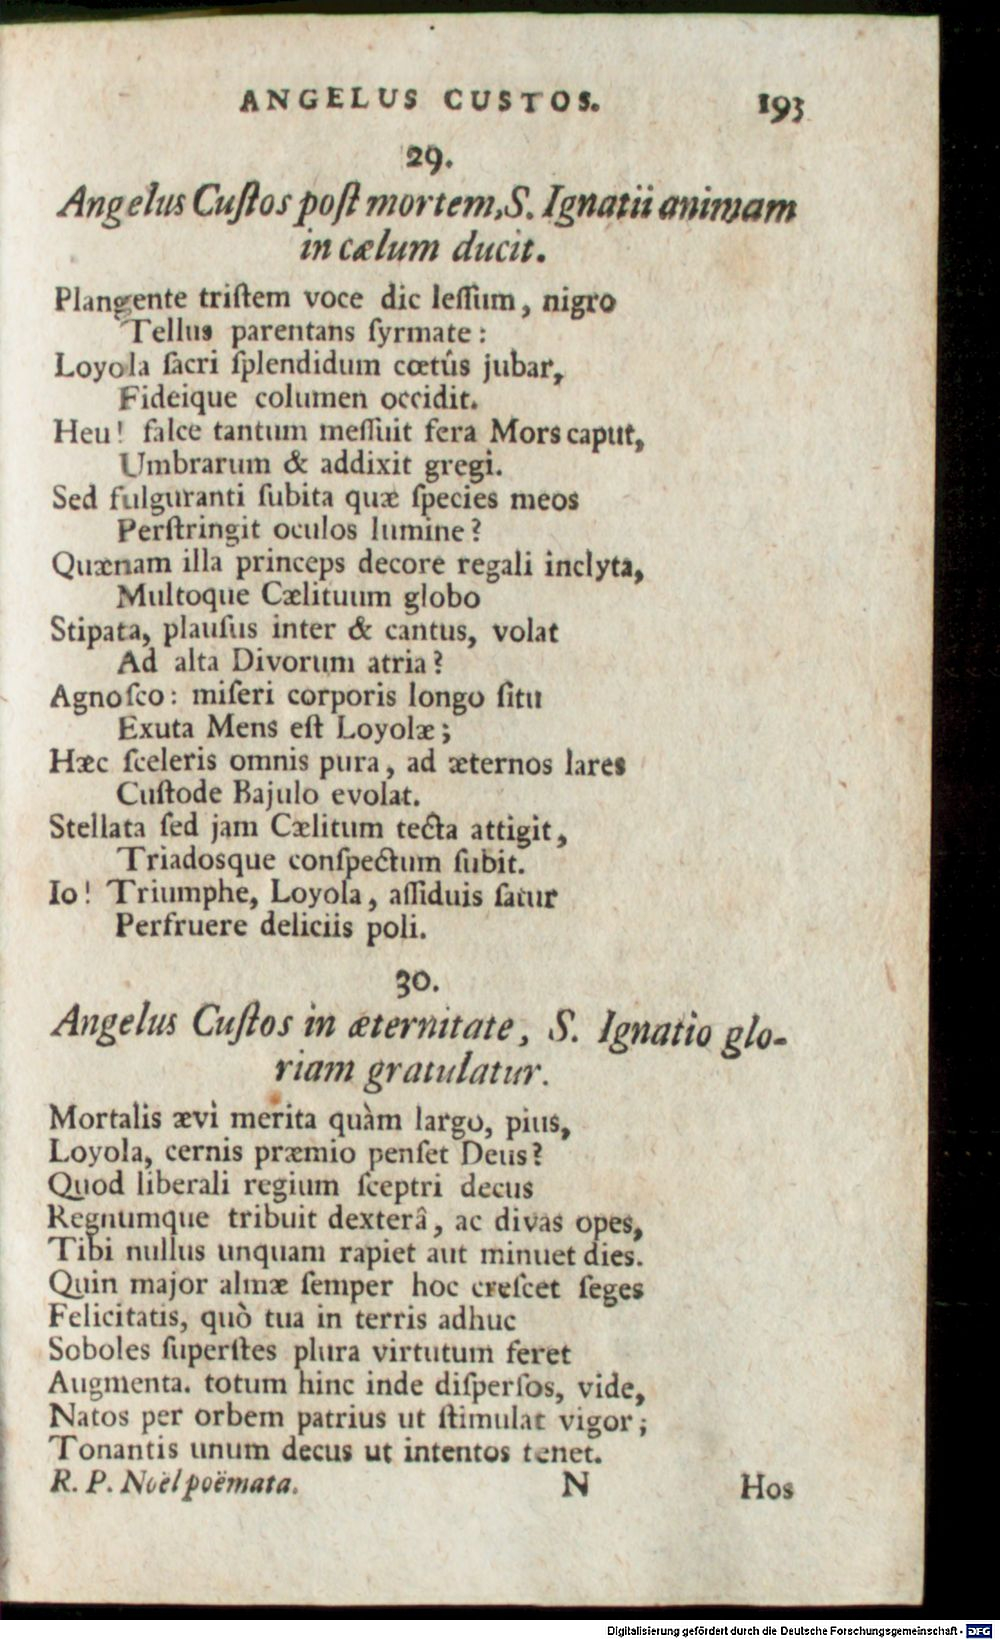 ANGELUS CUSTOS. 193
29.
Angelus Cuſtos poſt mortem, S. Ignatii animam
in cælum ducit.
Plangente triſtem voce dic leſſum, nigro
Tellus parentans ſyrmate:
Loyola ſacri ſplendidum cœtûs jubar,
Fideique columen occidit.
Heu! falce tantum meſſuit fera Mors caput,
Umbrarum & addixit gregi.
Sed fulguranti ſubita quæ ſpecies meos
Perſtringit oculos lumine?
Quænam illa princeps decore regali inclyta,
Multoque Cælituum globo
Stipata, plauſus inter & cantus, volat
Ad alta Divorum atria?
Agnoſco: miſeri corporis longo ſitu
Exuta Mens eſt Loyolæ;
Hæc ſceleris omnis pura, ad æternos lares
Cuſtode Bajulo evolat.
Stellata ſed jam Cælitum tecta attigit,
Triadosque conſpectum ſubit.
Io! Triumphe, Loyola, aſſiduis ſatur
Perfruere deliciis poli.
30.
Angelus Cuſtos in æternitate, S. Ignatio glo-
riam gratulatur.
Mortalis ævi merita quàm largo, pius,
Loyola, cernis præmio penſet Deus?
Quod liberali regium ſceptri decus
Regnumque tribuit dexterâ, ac divas opes,
Tibi nullus unquam rapiet aut minuet dies.
Quin major almæ ſemper hoc creſcet ſeges
Felicitatis, quò tua in terris adhuc
Soboles ſuperſtes plura virtutum feret
Augmenta. totum hinc inde diſperſos, vide,
Natos per orbem patrius ut ſtimulat vigor;
Tonantis unum decus ut intentos tenet.
R. P. Noël poëmata. N Hos
Digitalisierung gefördert durch die Deutsche Forschungsgemeinschaft - DFG